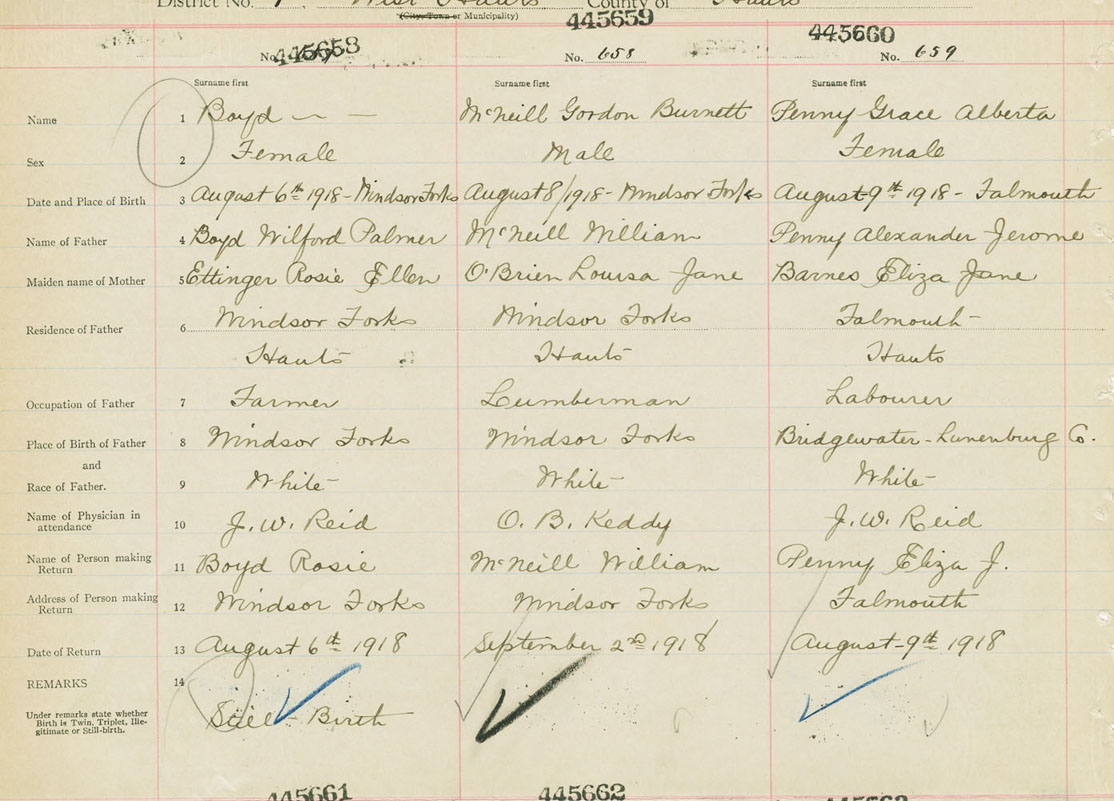 District No. West Hants County of Hants
(City, Town or Municipality)
445658 445659 445660
No. No. 658 No. 659
Surname first Surname first Surname first
Name 1 Boyd — — McNeill Gordon Burnett Penny Grace Alberta
Sex 2 Female Male Female
Date and Place of Birth 3 August 6th 1918 - Windsor Forks August 8/1918 - Windsor Forks August 9th 1918 - Falmouth
Name of Father 4 Boyd Wilford Palmer McNeill William Penny Alexander Jerome
Maiden name of Mother 5 Ettinger Rosie Ellen O'Brien Lousa Jane Barnes Eliza Jane
Residence of Father 6 Windsor Forks Windsor Forks Falmouth
Hants Hants Hants
Occupation of Father 7 Farmer Lumberman Labourer
Place of Birth of Father 8 Windsor Forks Windsor Forks Bridgewater - Lunenburg Co.
and
Race of Father. 9 White White White
Name of Physician in
attendance 10 J. W. Reid O. B. Keddy J. W. Reid
Name of Person making
Return 11 Boyd Rosie McNeill William Penny Eliza J.
Address of Person making
Return 12 Windsor Forks Windsor Forks Falmouth
Date of Return 13 August 6th 1918 September 2nd 1918 August 9th 1918
REMARKS 14
Under remarks state whether
Birth is Twin, Triplet, Ille-
gitimate or Still-birth. Still - Birth
445661 445662